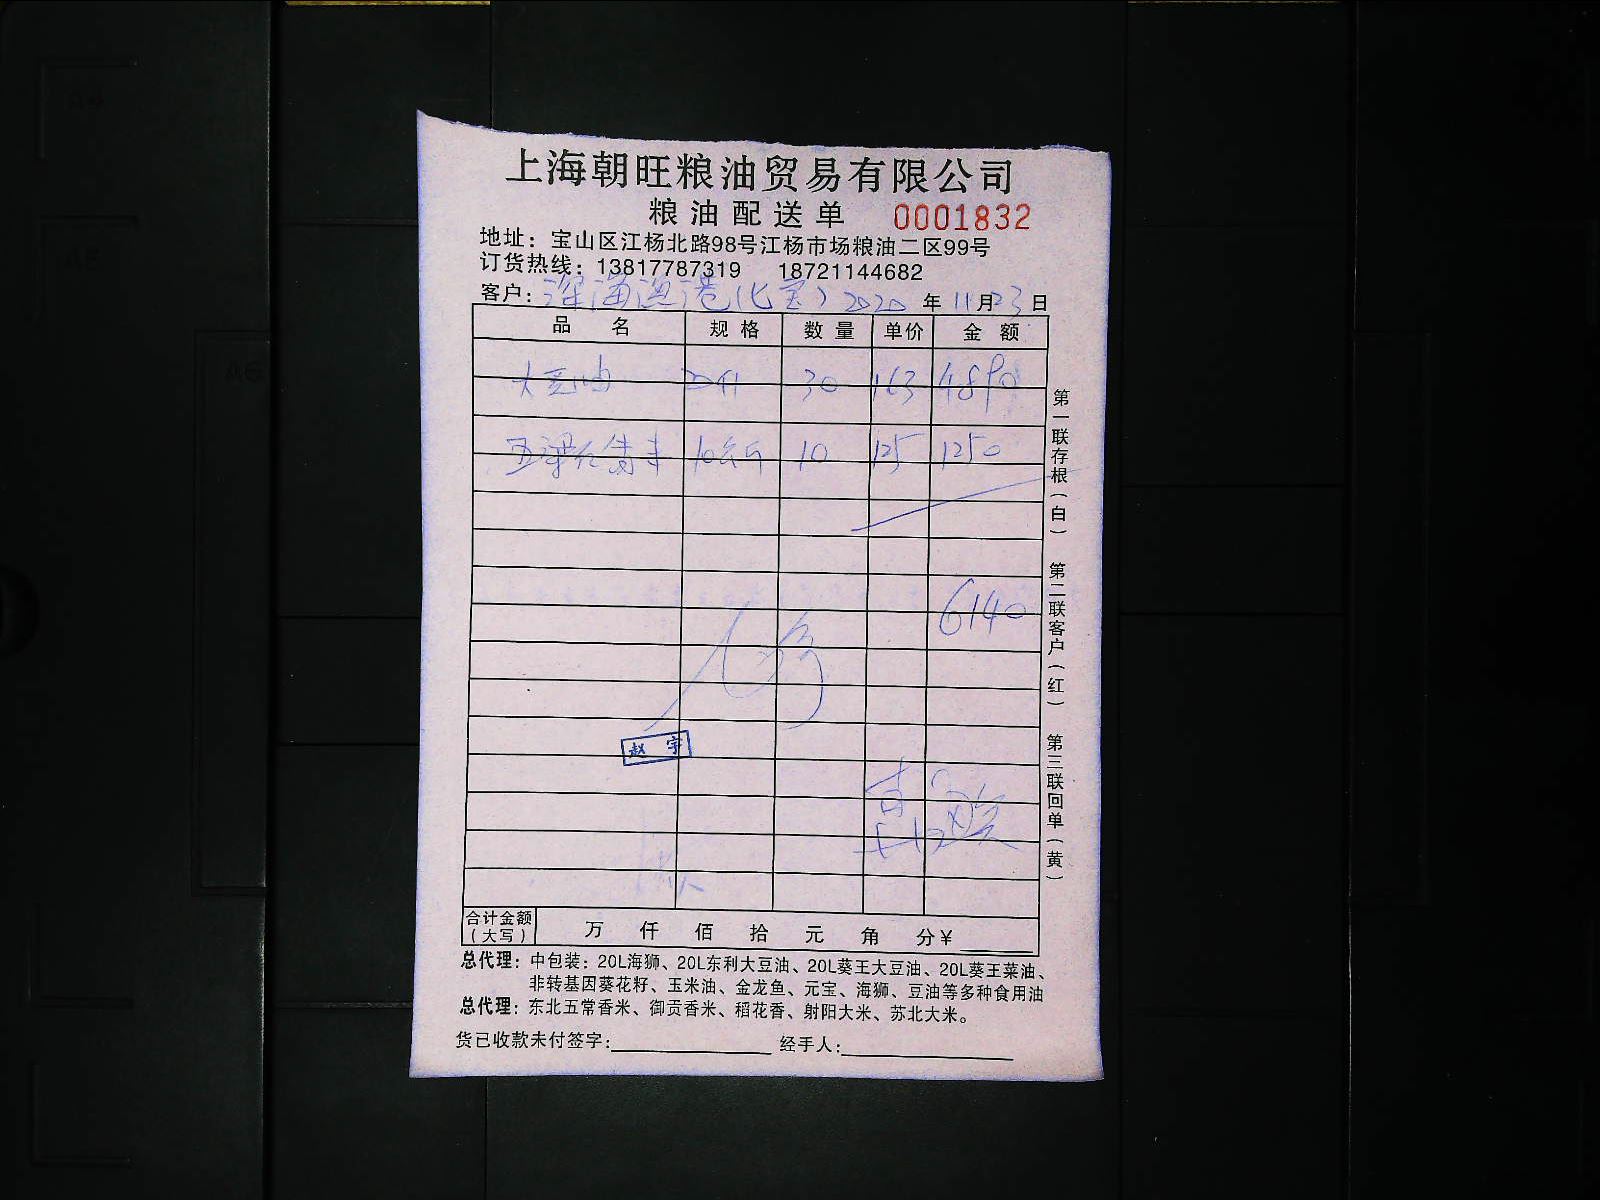 上海朝旺粮油贸易有限公司
粮油配送单 0001832
地址：宝山区江杨北路98号江杨市场粮油二区99号
订货热线：13817787319 18721144682
客户：深海渔港(七宝) 2020年11月23日
品名 规格 数量 单价 金额
大豆油 20升 30 163 4890
10公斤 10 125 1250
6140
赵宇
合计金额（大写） 万 仟 佰 拾 元 角 分¥
总代理：中包装：20L海狮、20L东利大豆油、20L葵王大豆油、20L葵王菜油、
非转基因葵花籽、玉米油、金龙鱼、元宝、海狮、豆油等多种食用油
总代理：东北五常香米、御贡香米、稻花香、射阳大米、苏北大米。
货已收款未付签字： 经手人：
第一联存根（白） 第二联客户（红） 第三联回单（黄）